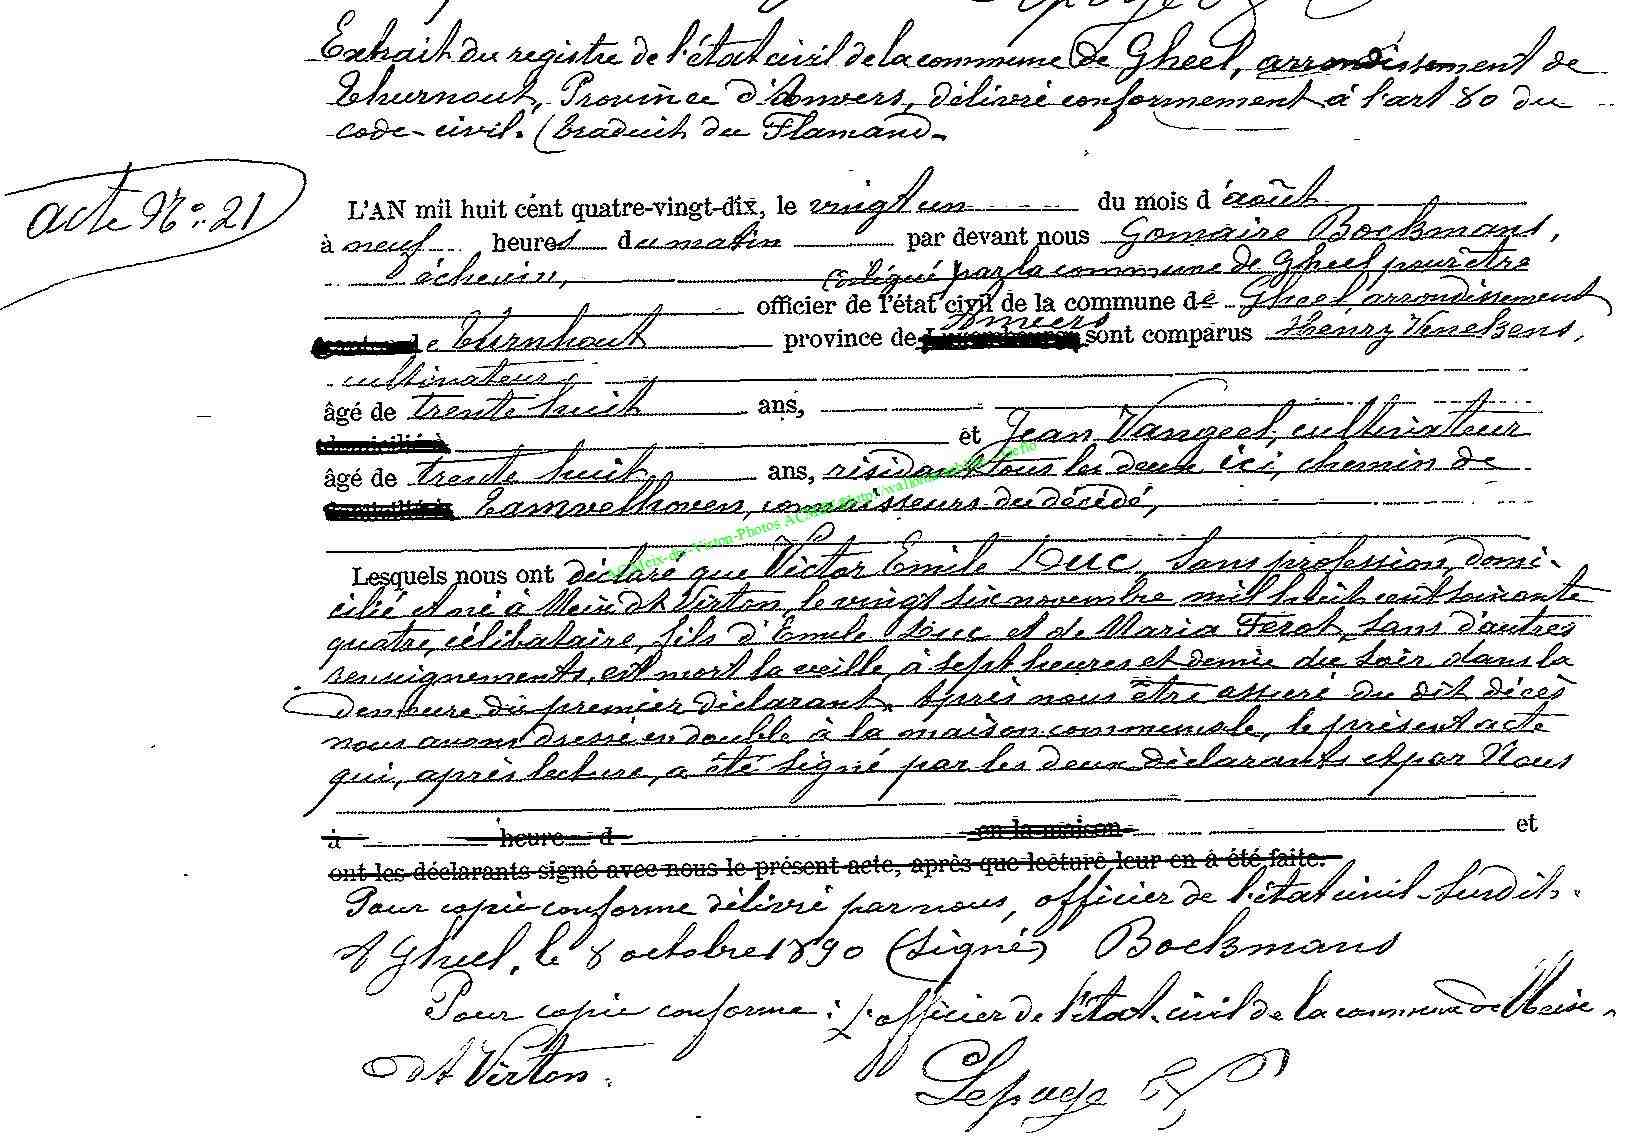 Extrait du registre de l'état civil de la commune de Gheel, arrondissement de
Thurnout, Province d'Anvers, délivré conformement à l'art 80 du
code civil. (traduit du Flamand.
acte No. 21
L'AN mil huit cent quatre-vingt-dix, le vingt un du mois d'août
à neuf heures du matin par devant nous Gomaire Bockmans,
échevin, délégué par la commune de Gheel pour être
officier de l'état civil de la commune de Gheel arrondissement
de Turnhout province de Anvers sont comparus Henry Venekens,
cultivateur,
âgé de trente huit ans,
domicilié à et Jean Vangeel, cultivateur
âgé de trente huit ans, résidant tous les deux ici, chemin de
domicilié à Lamvelhoven, connaisseurs du décédé,
Lesquels nous ont déclaré que Victor Emile Duc, sans profession, domi-
cilié et né à Meix dt Virton, le vingt six novembre mil huit cent soixante
quatre, célibataire, fils d'Emile Duc et de Maria Ferot, sans d'autres
renseignements, est mort la veille, à sept heures et demie du soir dans la
demeure du premier déclarant. Après nous être assuré du dit décès
nous avons dressé en double à la maison communale, le présent acte
qui, après lecture, a été signé par les deux déclarants et par Nous
à heure d en la maison et
ont les déclarants signé avec nous le présent acte, après que lecture leur en a été faite.
Pour copie conforme délivré par nous, officier de l'état civil susdit.
A Gheel, le 8 octobre 1890 (signé) Bockmans
Pour copie conforme : L'officier de l'état civil de la commune de Meix
dt Virton.
Lepage